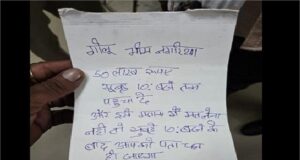 गोलू सोम नगरिया
50 लाख रूपए
सुबह 10:बजे तक
पहुचा दे
और
नही तो सुबह 10:बजे के
बाद आपको पता चल
ही जाएगा